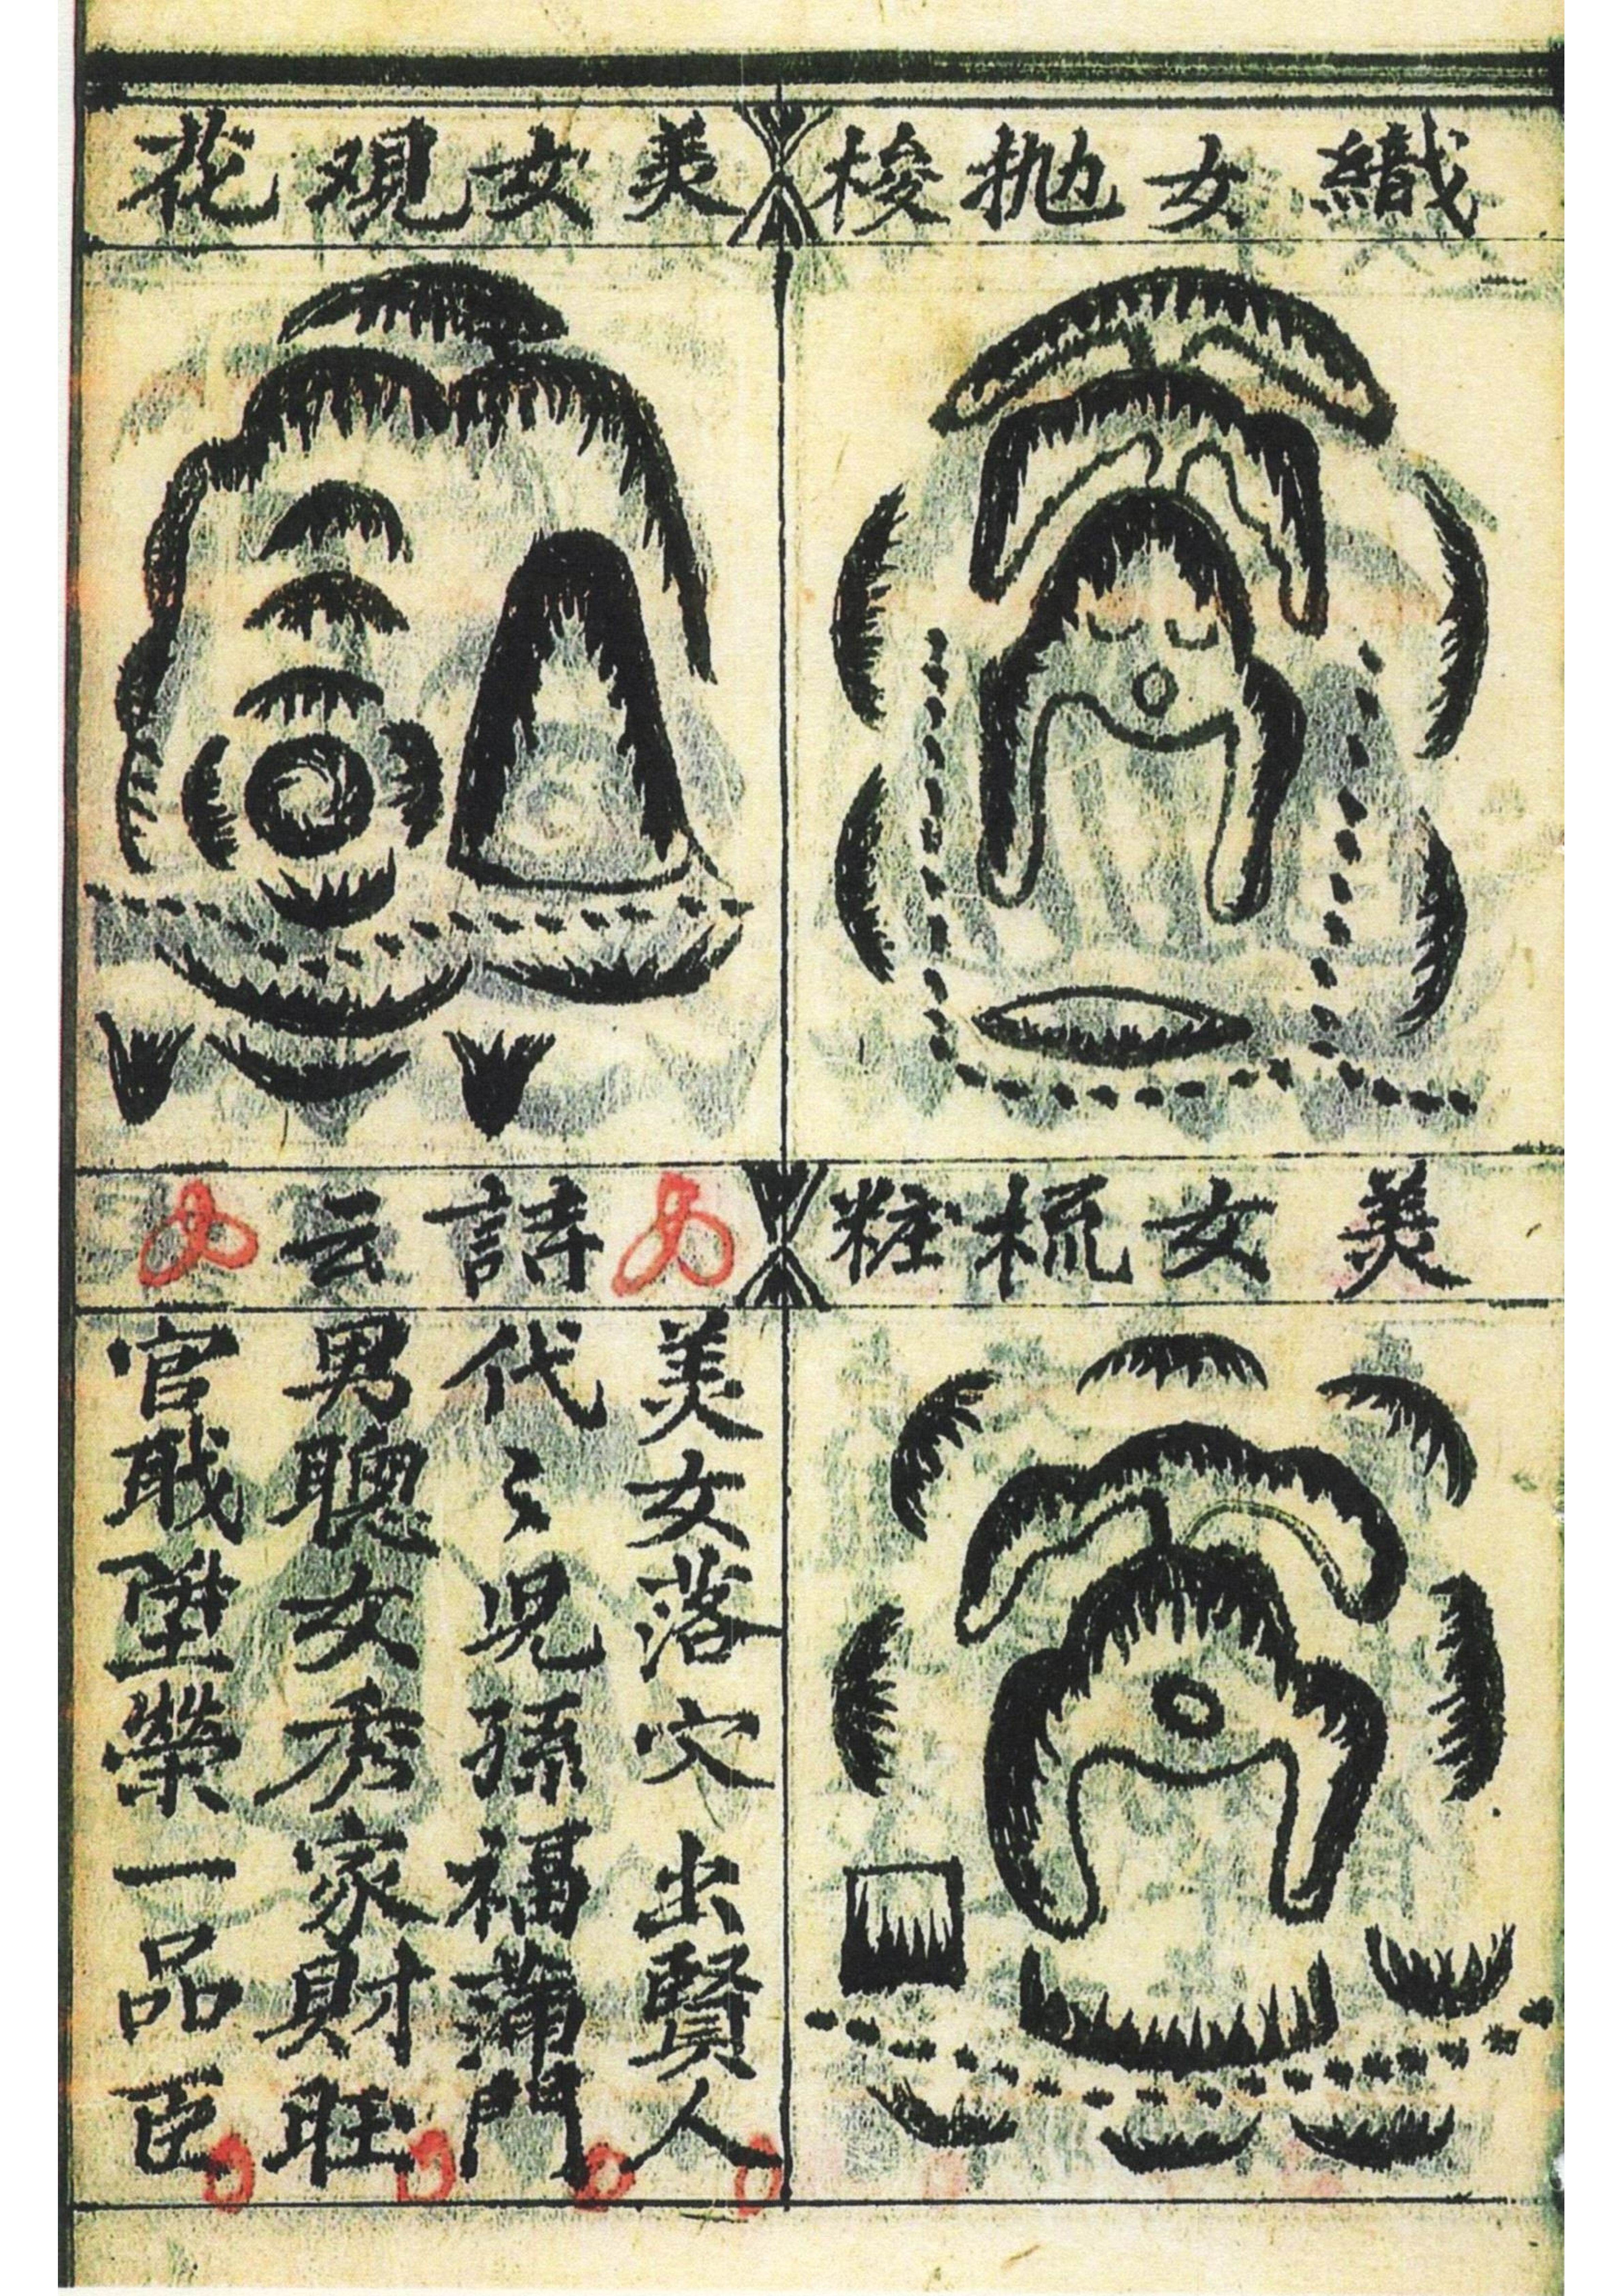 織女抛梭
美女观花
美女梳粧
詩云
美女落穴出賢人
代〻児孫福蒲門
男聰女秀家財旺
官戢陞榮一品臣